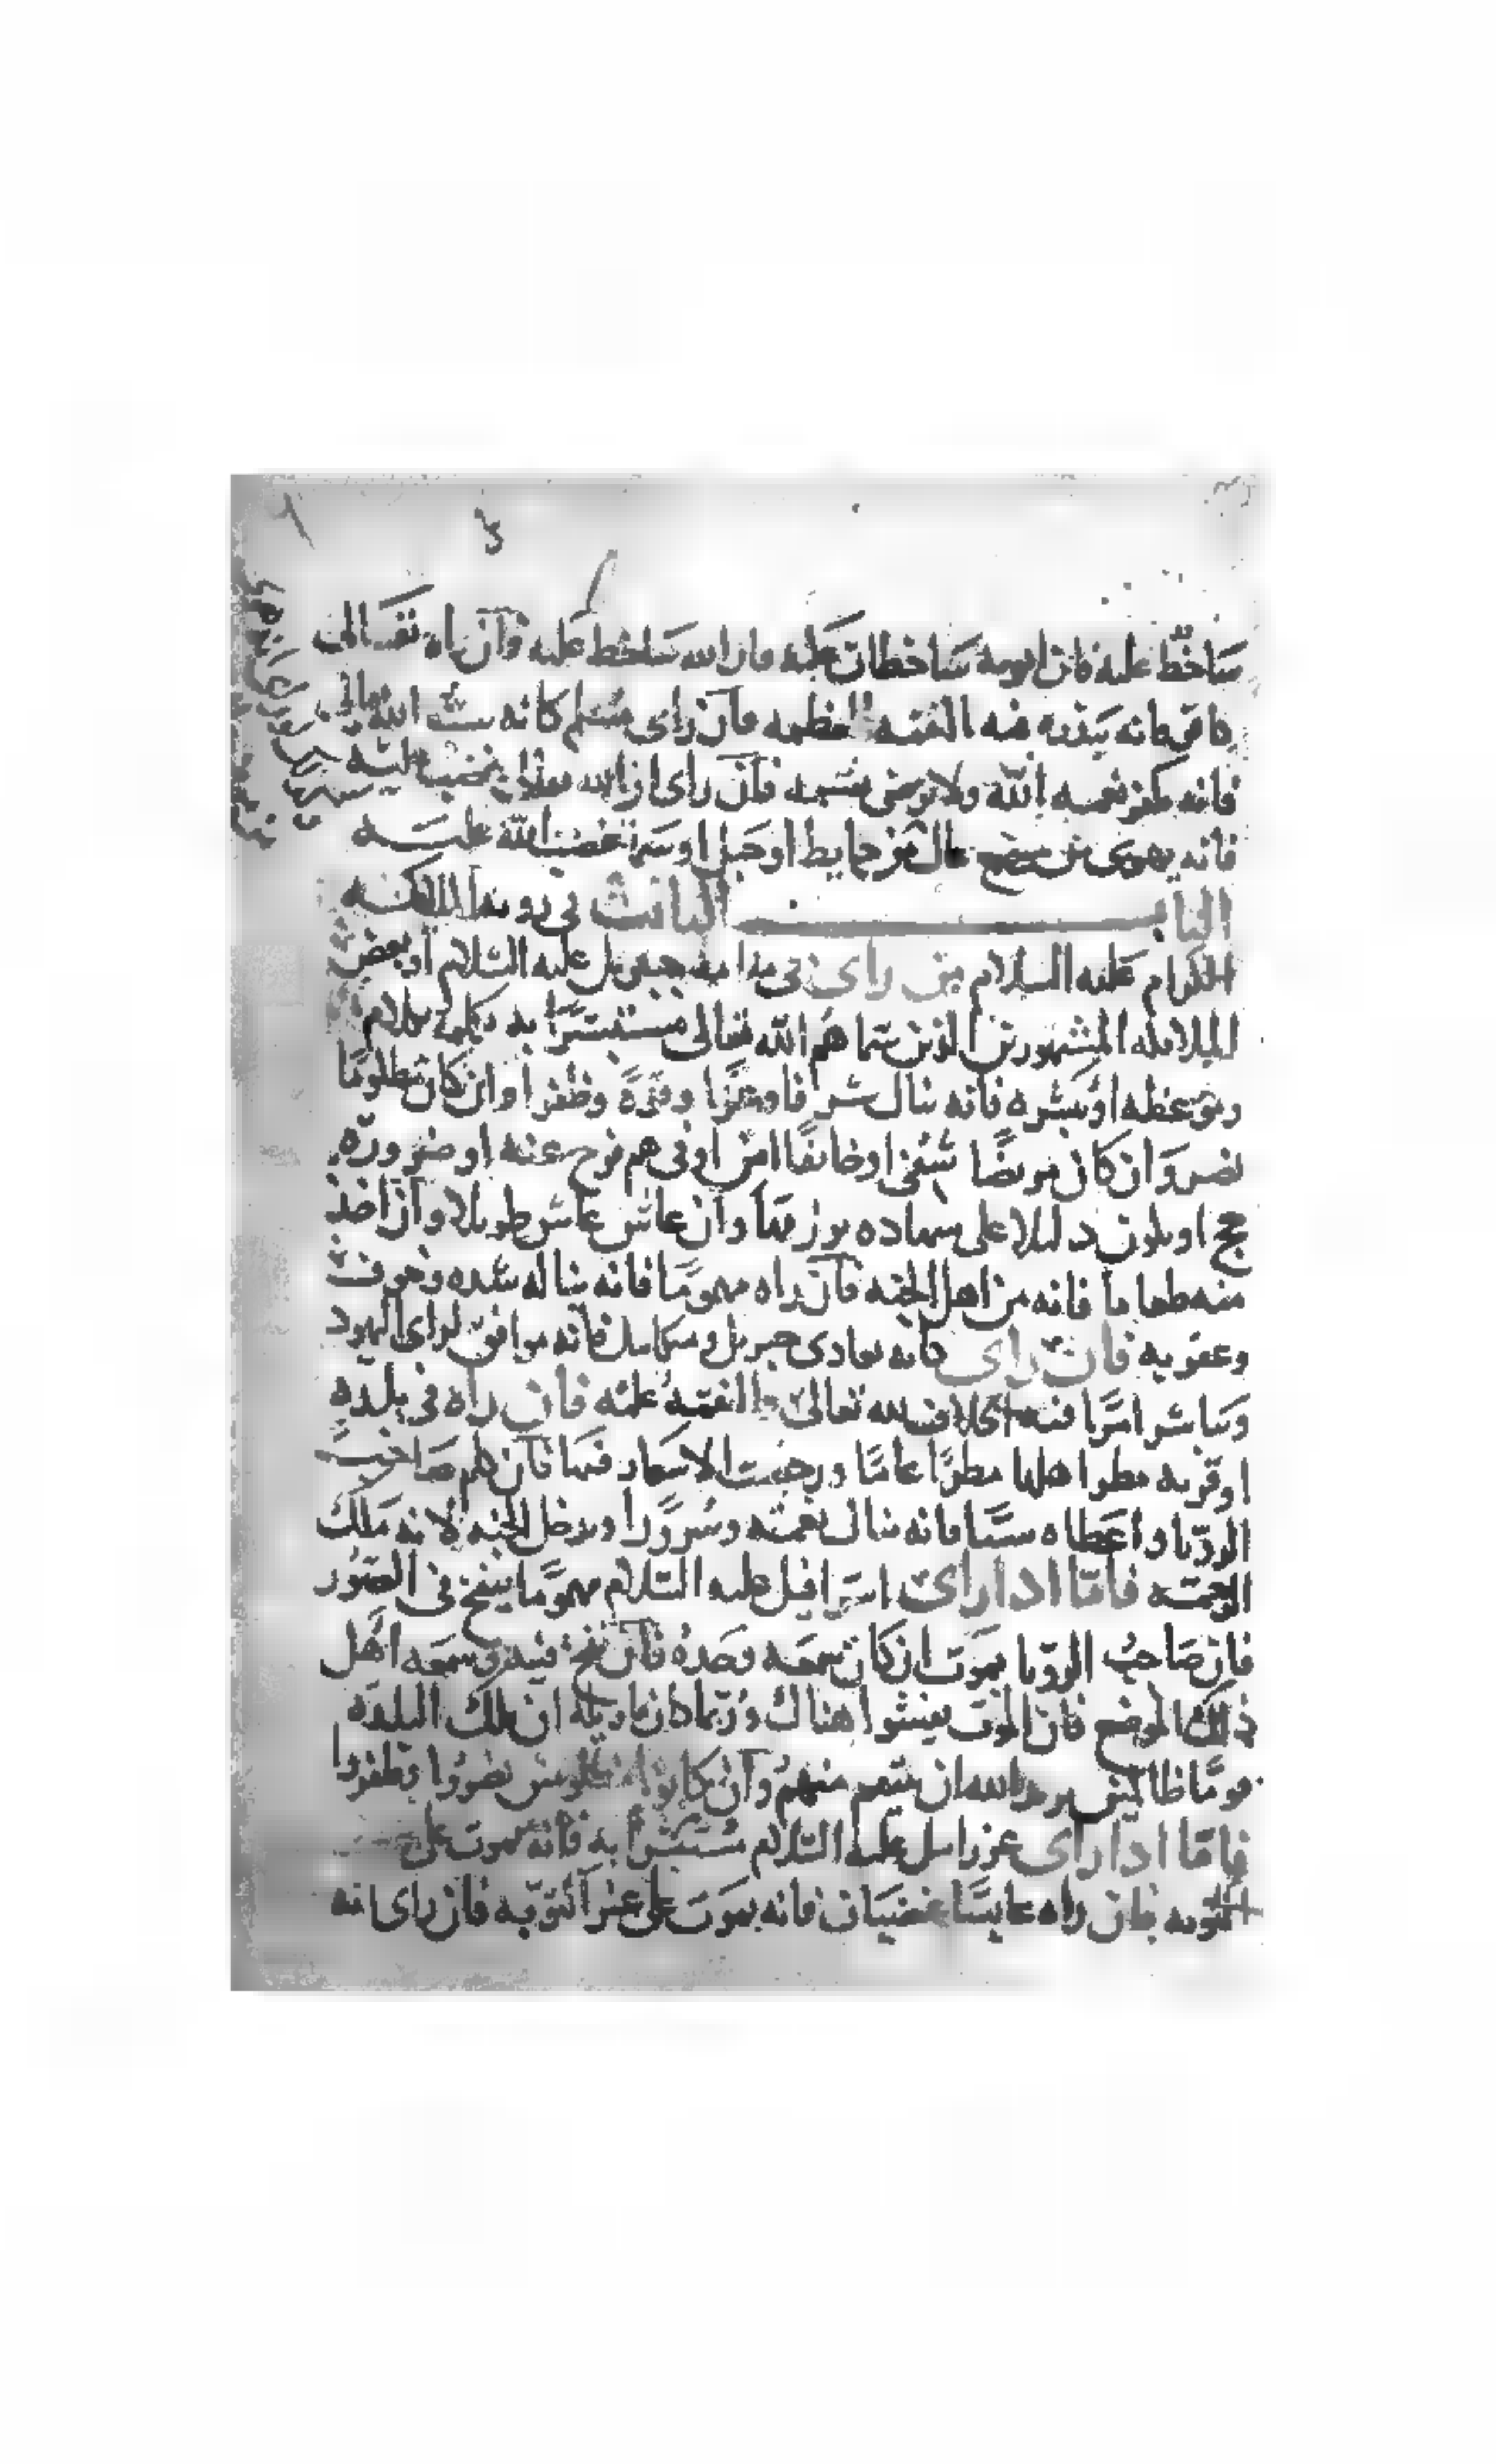 ساخط عليه فان ابويه ساخطان عليه فان الله ساخط عليه وان راه تعالى
فانه منه النعمه العظيمه فان راى كانه الله تعالى
فانه يكفر نعمه الله ولا يرضى بقسمه فان راى ان الله تعالى غضب عليه
فانه يهوى من موضع عال من حايط او جبل او سما غضب الله عليه
الباب الثالث فى رويه الملايكه
الكرام عليه السلام من راى فى منامه جبريل عليه السلام او بعض
الملايكه المشهورين الذين سماهم الله تعالى مستبشرا به يكلمه بكلام
او يعظه او يبشره فانه ينال شرفا وعزا وقوة وظفرا وان كان مظلوما
نصر وان كان مريضا شفى او خائفا امن او فى هم فرج عنه او صروره
حج او يكون دليلا على شهاده يرزقها وان عاش عاش طويلا وان اخذ
منه طعاما فانه من اهل الجنه فان راه مهموما فانه يناله شده وخوف
وعقوبه فان راى كانه يعادى جبريل وميكاييل فانه موافق لراى اليهود
ويباشر امرا فيه خلاف لله تعالى والنقمه عليه فان راه فى بلده
او قريه مطر اهلها مطرا عاما ورخصت الاسعار فيها فان كلم صاحب
الرؤيا واعطاه شيئا فانه ينال نعمه وسرورا ويدخل الجنه لانه ملك
الرحمه فاما اذا راى اسرافيل عليه السلام مهموما ينفخ فى الصور
فان صاحب الرؤيا يموت ان كان سمعه وحده فان نفخ فيه وسمعه اهل
ذلك الموضع فان الموت يفشوا هناك وربما كان تاويله ان ملك البلده
قوما ظالمين يريد الله ان ينتقم منهم وان كانوا مظلومين نصروا وظفروا
فاما اذا راى عزراييل عليه السلام مستبشرا به فانه يموت على
التوبه فان راه عابسا غضبان فانه يموت على غير التوبه فان راى انه